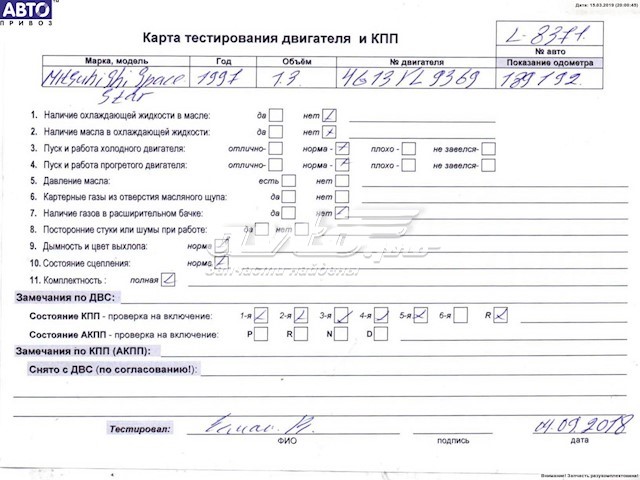 АВТО
ПРИВОЗ
Дата: 15.03.2019 (20:00:45)
Карта тестирования двигателя и КПП
L-8371
№ авто
Марка, модель Год Объём № двигателя Показание одометра
Mitsubishi Space Star 1997 1.3 4G13 VL9369 189192
1. Наличие охлаждающей жидкости в масле: да нет
2. Наличие масла в охлаждающей жидкости: да нет
3. Пуск и работа холодного двигателя: отлично- норма - плохо - не завелся-
4. Пуск и работа прогретого двигателя: отлично- норма - плохо - не завелся-
5. Давление масла: есть нет
6. Картерные газы из отверстия масляного щупа: да нет
7. Наличие газов в расширительном бачке: да нет
8. Посторонние стуки или шумы при работе: да нет
9. Дымность и цвет выхлопа: норма
10. Состояние сцепления: норма
11. Комплектность : полная
Замечания по ДВС:
Состояние КПП - проверка на включение: 1-я 2-я 3-я 4-я 5-я 6-я R
Состояние АКПП - проверка на включение: P R N D
Замечания по КПП (АКПП):
Снято с ДВС (по согласованию!):
Тестировал:
ФИО подпись дата
Внимание! Запчасть разукомплектована!